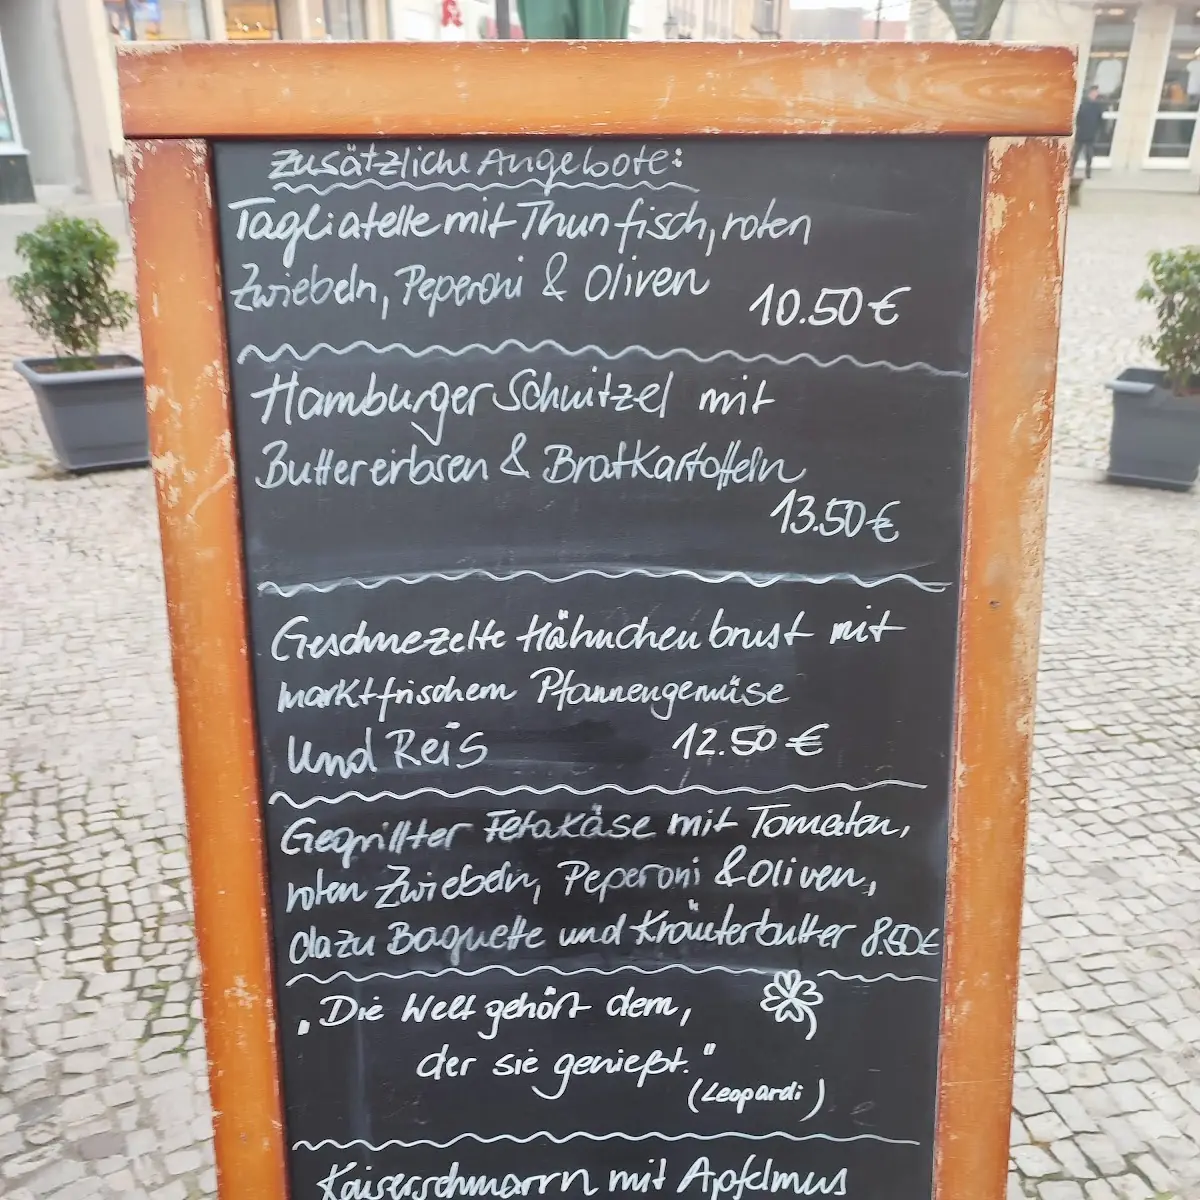 Zusätzliche Angebote:
Tagliatelle mit Thunfisch, roten
Zwiebeln, Peperoni & Oliven
10.50 €
Hamburger Schnitzel mit
Buttererbsen & Bratkartoffeln
13.50 €
Geschnezelte Hähnchenbrust mit
marktfrischem Pfannengemüse
und Reis 12.50 €
Gegrillter Fetakäse mit Tomaten,
roten Zwiebeln, Peperoni & Oliven,
dazu Baguette und Kräuterbutter 8.50€
„Die Welt gehört dem,
der sie genießt."
(Leopardi)
Kaiserschmarrn mit Apfelmus